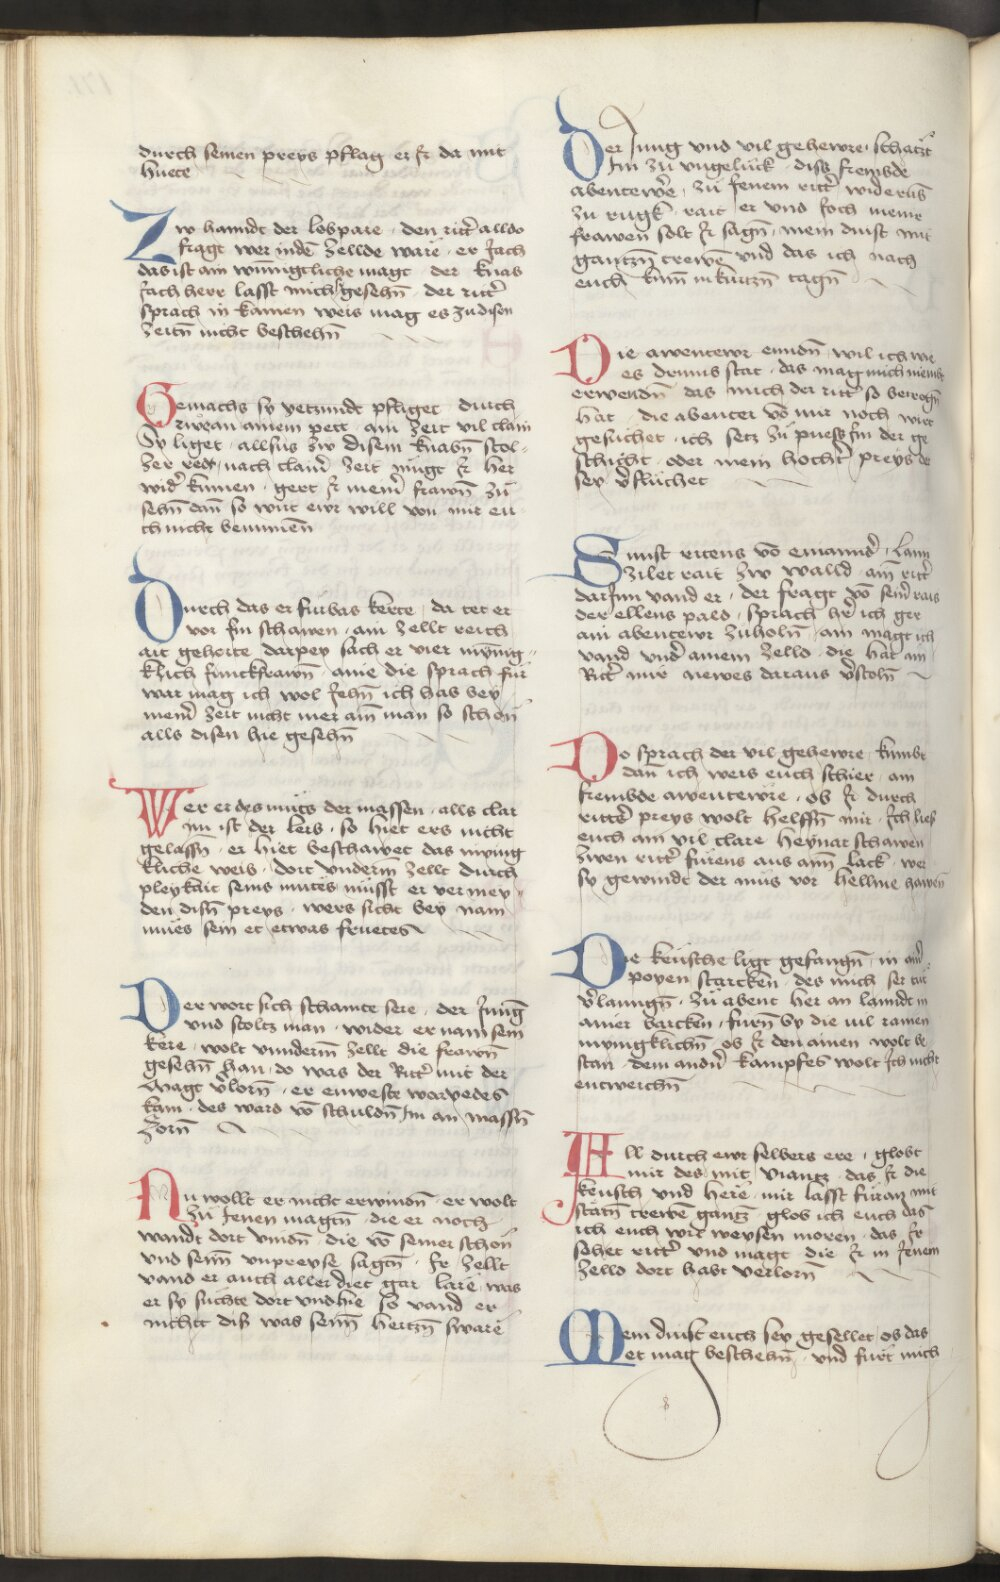 durch seinen preys pflag er Ir da mit
huete
Zw hanndt der lobpare · den rittr̄ alldo
fragt wer indē zellde ware · er Jach
das ist ain wūnigtliche magt · der knab
Jach herr lasst mich gesehn̄ · der rittr̄
sprach in kainen weis mag es zu disen
zeitn̄ nicht beschehn̄
Gemachs sy yetzundt pfliget · durch
rwe an ainem pett · ain zeit vil clain
Sy liget · allsus zw disem knabn̄ stol-
zer redt · nach clainr̄ zeit mügt Ir her
widr̄ kumen · gert Ir meinr̄ frawn̄ zu
sehn̄ dan̄ so wirt ewr will von mir eu
ch nicht benumen̄
Durch das er fürbas kerte · da tet er
vor Im schawen · ain zellt reich
art geherte darpey sach er vier mynig-
klich Junckfrawn̄ · aine die sprach für
war mag ich wol Jehn̄ ich hab bey
meinr̄ zeit nicht mer ain̄ man so schon
alls disen hie gesehn̄
Wer er des muts der massen · alls clar
im ist der leib · so hiet ers nicht
gelassn̄ · er hiet beschawet das mynig
kliche weib · dort underm̄ zellt durch
pleykait seins mutes müsst er vermey-
den disn̄ preys · wers sicht bey nam
mues sein et etwas fruetes
Der wort sich schamte sere · der Jung
und stoltz man · wider er nam sein
kere · wolt vnnderm̄ zellt die frawn̄
gesehn̄ han · do was der Rittr̄ mit der
Magt v̄lorn̄ · er enweste war yedes
kam · des ward vō schuldn̄ Im an massn̄
zorn̄
Nu wollt er nicht erwindn̄ · er wolt
zu Jenen magtn̄ · die er noch
wandt dort vindn̄ · die vō seiner schon
und seim̄ unpreyse sagtn̄ · Ir zellt
vand er auch aller diet gar lare · was
er sy suchte dort und hie so vand er
nicht dis was seim̄ hertzn̄ sware
Der Jung vnd vil gehewre · schatzt
Im zu vngelück · diss frembde
abentewr̄ · zu Jenem rittr̄ widerub̄
zu rugk · rait er vnd Joch meinr
frawen solt Ir sagn̄ · mein dinst mit
gantzn̄ trewē vnd das ich nach
euch kum̄ in kurtzn̄ tagn̄
Die awentewr enndn̄ · wil ich wie
es drumb stat · das mag mich niembt
erwendn̄ das mich der rittr̄ so betrogn̄
hat · die abenter vō mir noch wirt
gesuchet · ich setz zu puess Im der ge
schicht · oder mein hochtr̄ preys der
sey v̄fluchet
Sunst ritens vō einannd̄ · Lann
zilet rait zw walld · ain̄ rittr̄
darJnn vand er · der fragt vō seinr̄ rais
der ellens pald · sprach hr̄ ich ger
ain abentewr zuholn̄ · ain magt ich
vand vnd̄ ainem zelld · die hat ain
Rittr̄ mir newes daraus v̄stoln̄
Do sprach der vil gehewre · kumbt
dan̄ ich weis euch schier · ain
frembde awentewre · ob Ir durch
rittr̄ preys wolt helffn̄ mir · Ich lies
euch ain vil clare heynat schawen
zwen rittr̄ fürens aus ainr̄ lack · wer
sy gewindt der mus vor hellme hawen
Die keusche ligt gefangn̄ · in ainr̄
poyen starcken · des mich ser tut
v̄lanngn̄ · zu abent her an lanndt in
ainer barcken · fürn̄ sy die vil rainen
mynigklichn̄ ob Ir den ainen wolt be
stan · dem andrn̄ kampfes wolt Ich nicht
entweichn̄
All durch ewr selbers ere · globt
mir des mit viantz · das Ir die
keusch vnd here · mir lasst füran mit
stätn̄ trewē gantz · glob ich euch das
ich euch wil weysen moren · das Ir
sehet rittr̄ vnd magt · die Ir in Jenem
zelld dort habt verlorn̄
Mein dinst euch sey gesellet ob das
et mag beschehn̄ · vnd fürt mich